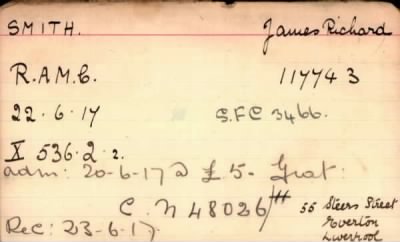 SMITH. James Richard
R.A.M.C. 117743
22.6.17 S.F.C 3466.
X 536.2.2.
adm: 20-6-17 @ £5- Grat:
C.N 48026/
55 Steers Street
Everton
Liverpool
Rec: 23-6-17.